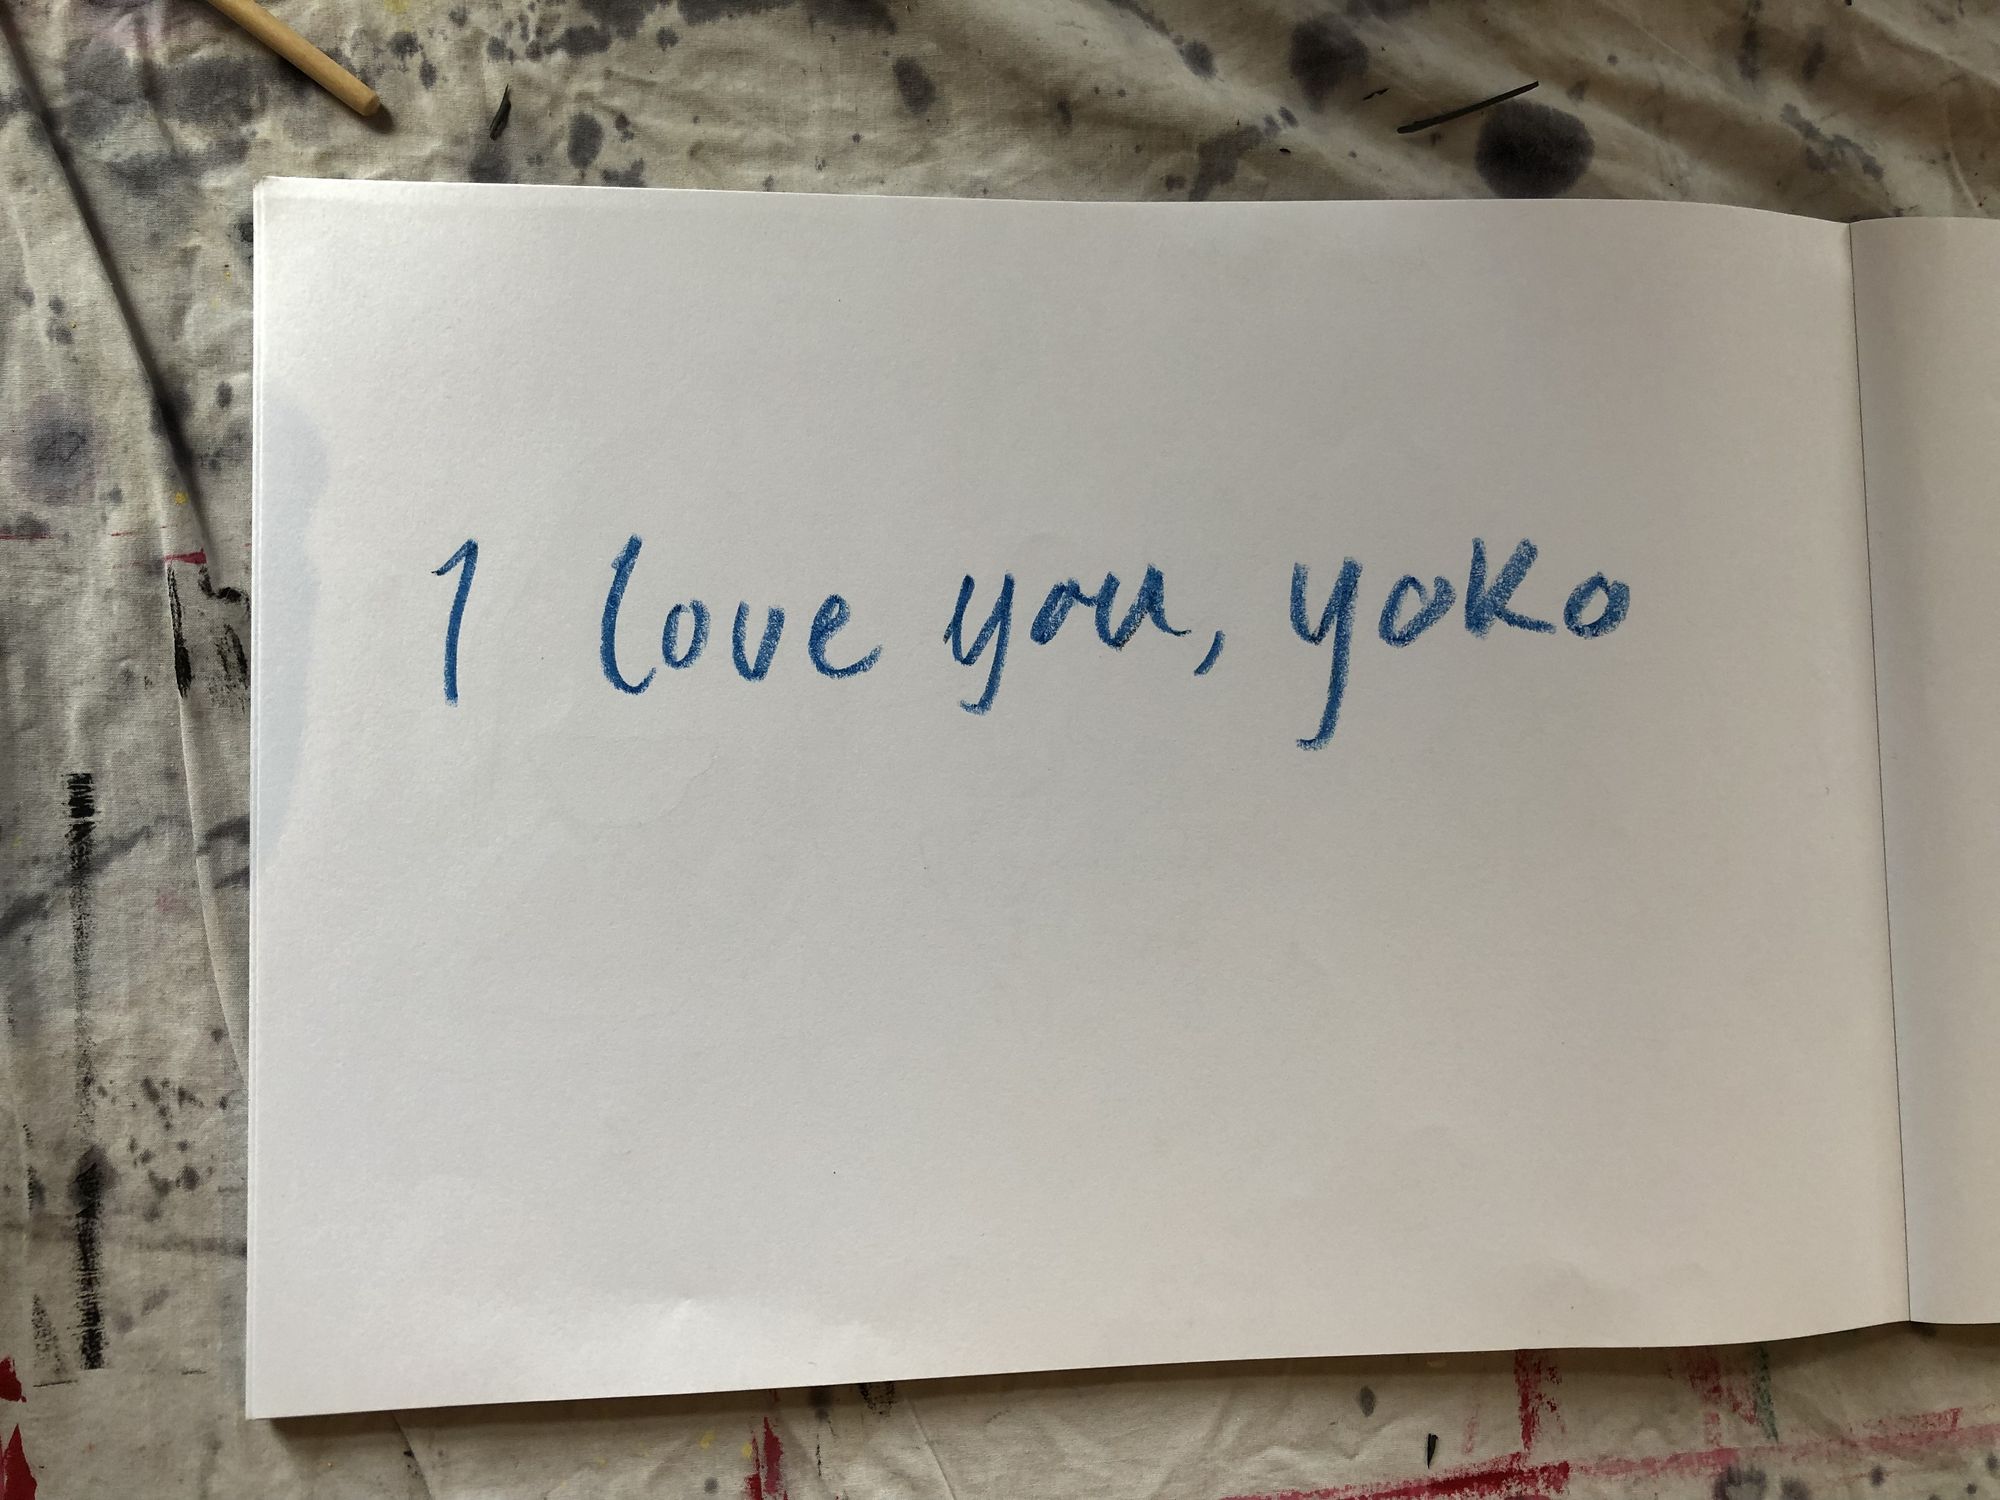 I love you, yoko